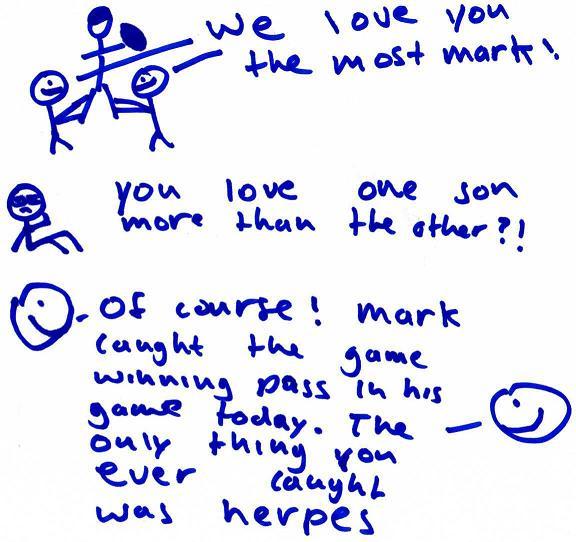 We love you
the most mark!
you love one son
more than the other?!
Of course! mark
caught the game
winning pass in his
game today. The
only thing you
ever caught
was herpes